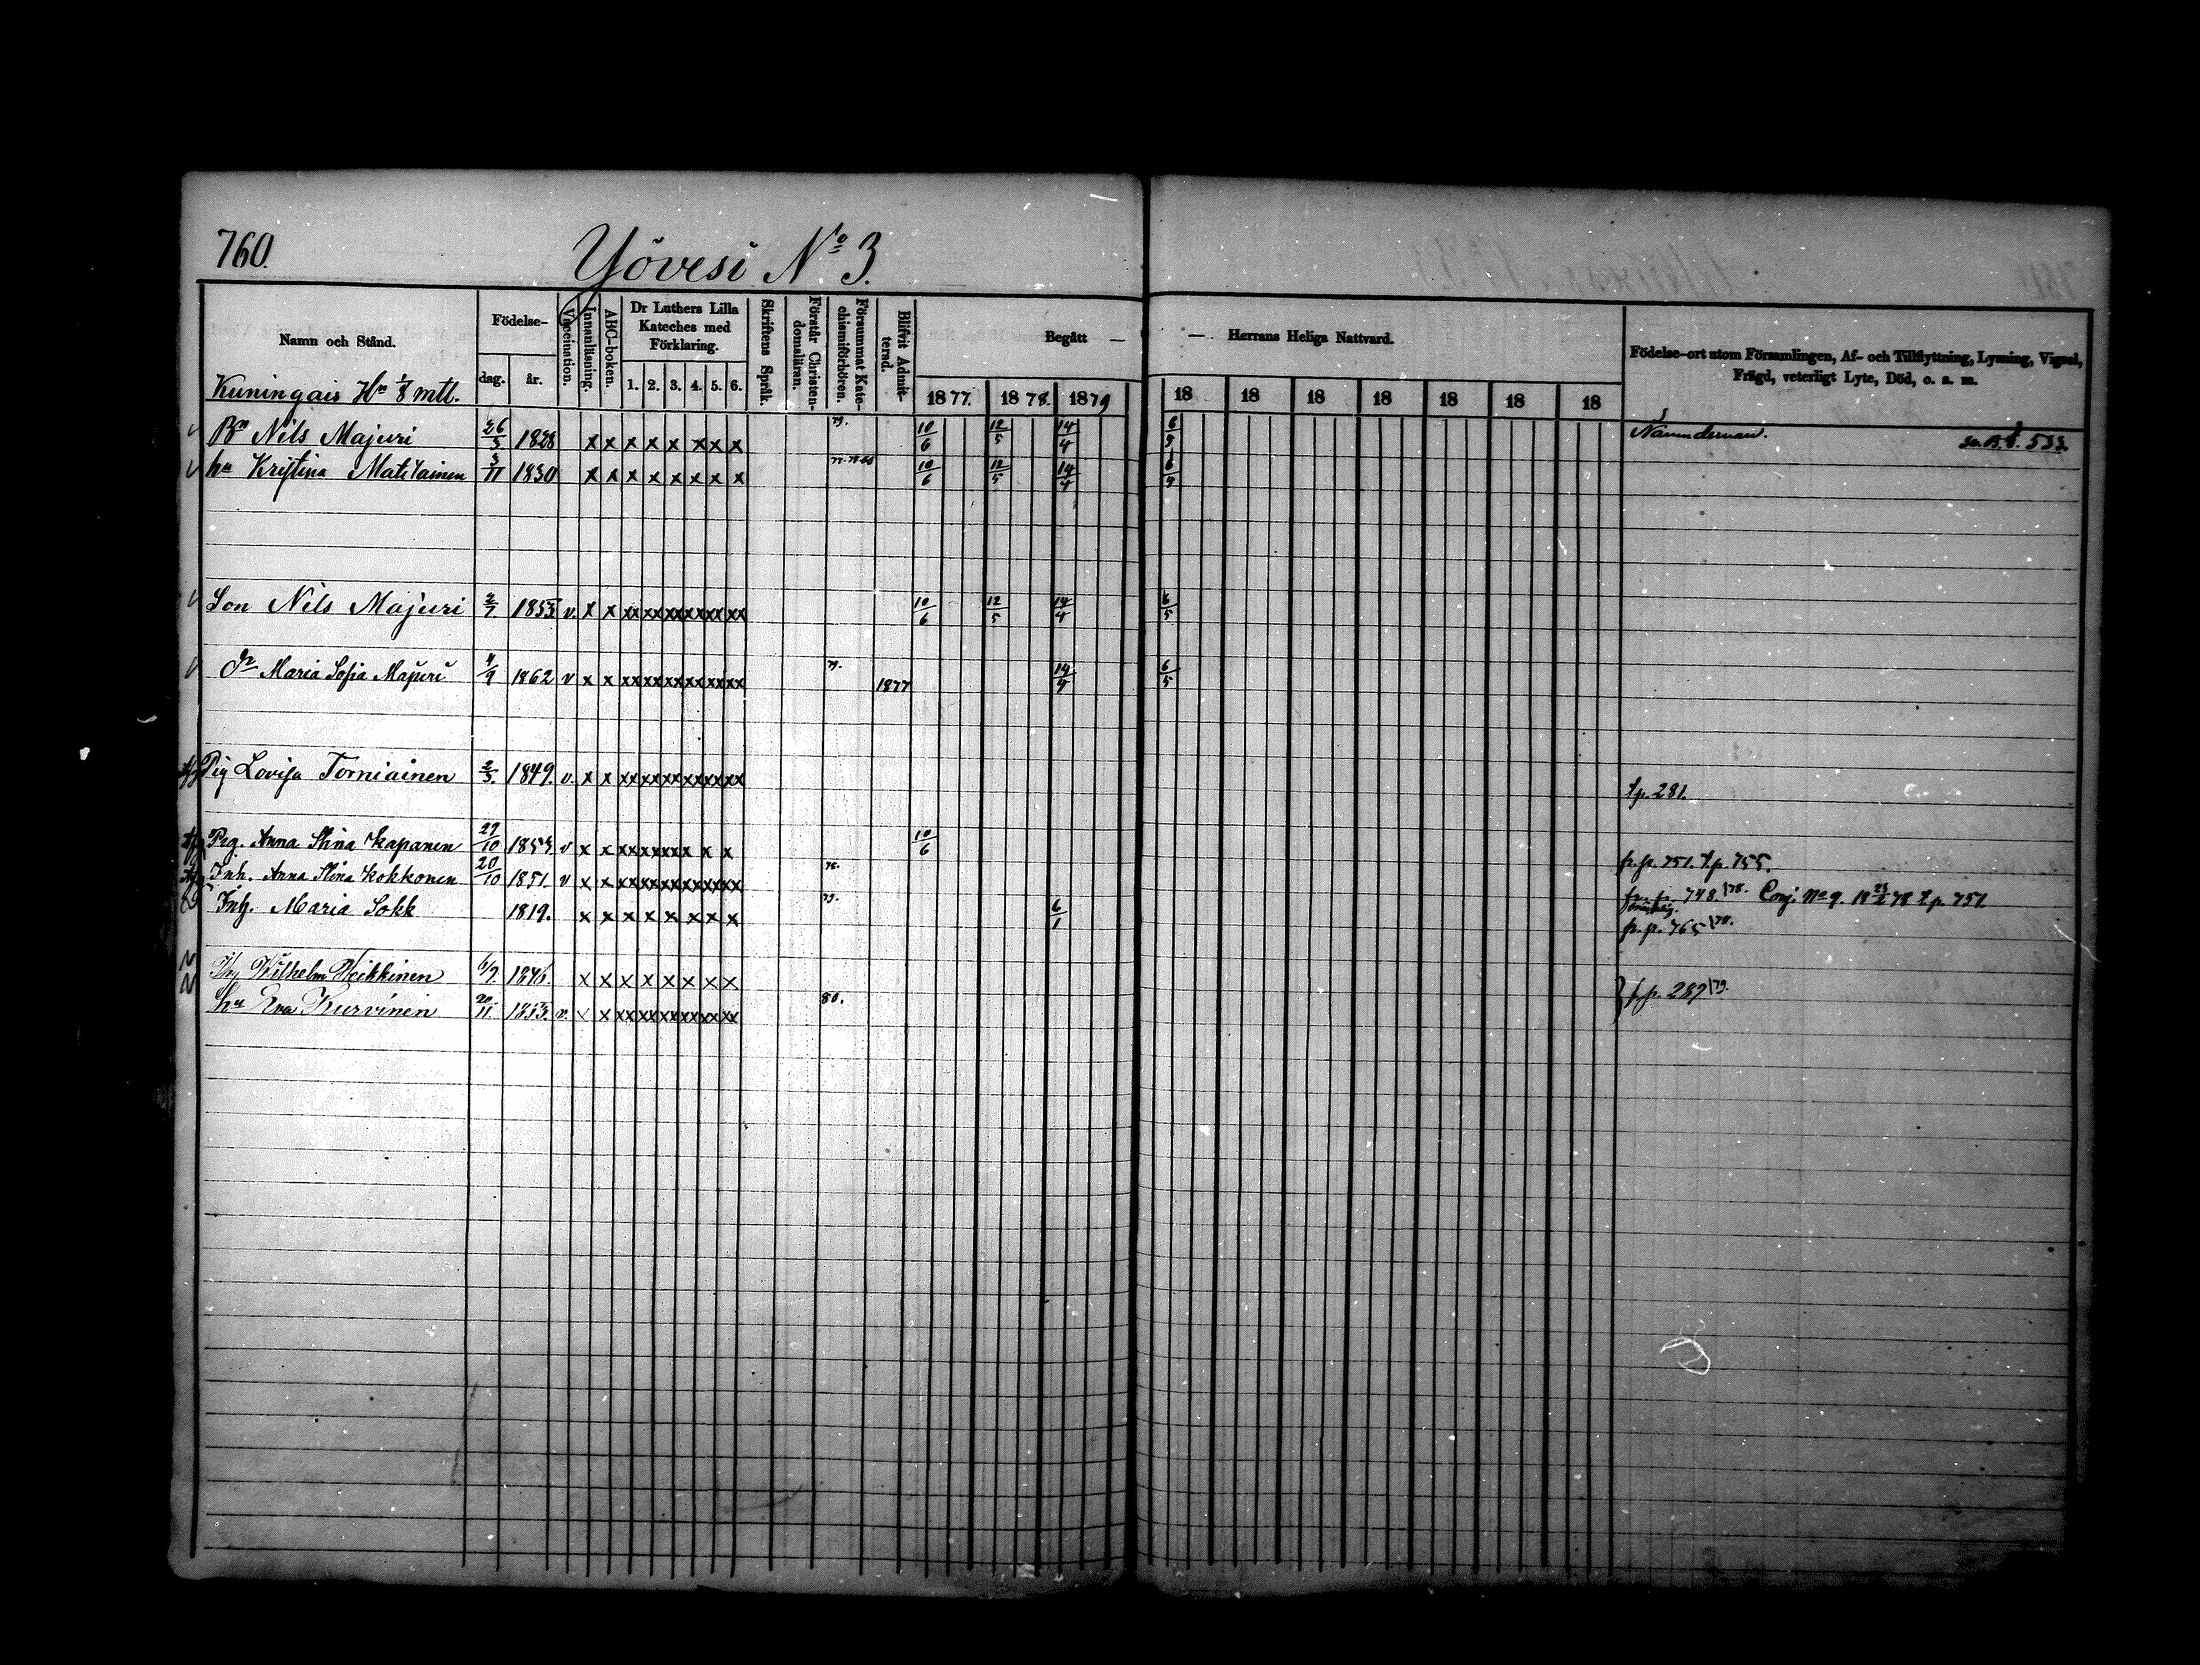 760.
Yövesi No 3.
Namn och Stånd.
Födelse-
dag. år.
Vaccination.
Innanläsning.
ABC-boken.
Dr Luthers Lilla
Kateches med
Förklaring.
1. 2. 3. 4. 5. 6.
Skriftens Språk.
Förstår Christen-
domsläran.
Försummat Kate-
chismiförhören.
Blifvit Admit-
terad.
Begått —
— Herrans Heliga Nattvard.
1877. 1878. 1879 18 18 18 18 18 18 18
Födelse-ort utom Församlingen, Af- och Tillflyttning, Lysning, Vigsel,
Frägd, veterligt Lyte, Död, o. s. m.
Kuningais Hn 1/8 mtl.
Bn Nils Majuri 26/5 1828 x x x x x x x x 79. 10/6 12/5 14/4 6/5 Nämndeman. 533
hu Kristina Matilainen 3/11 1830 x x x x x x x x 10/6 12/5 14/4 6/5
Son Nils Majuri 2/7 1853 v. x x xx xx xx xx xx xx 10/6 12/5 14/4 6/5
Dr Maria Sofia Majuri 4/9 1862 v x x xx xx xx xx xx xx 79. 1877 14/4 6/5
Pig Lovisa Torniainen 2/5. 1849. v. x x xx xx xx xx xx xx t.p. 281.
Pig. Anna Stina Kapanen 29/10 1853 v x x xx xx xx x x x 10/6 fr. p. 751. t.p. 755.
Inh. Anna Stina Kokkonen 20/10 1851 v x x xx xx xx xx xx xx 78. fr. p. 748. /78. Conj. No 9. 18 78 t.p. 751.
Inh. Maria Sokk 1819. x x x x x x x x 79. 6/1 fr. p. 765 /78.
Inh Wilhelm Heikkinen 6/7. 1846. x x x x x x x x
hu Eva Kurvinen 20/11. 1853. v. x x xx xx xx xx xx xx 80. } fr. p. 289 /79.